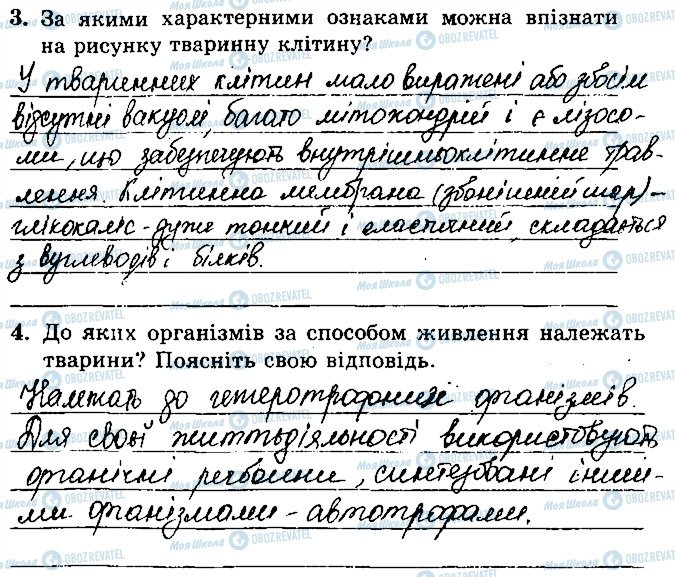 3. За якими характерними ознаками можна впізнати
на рисунку тваринну клітину?
У тваринних клітин мало виражені або зовсім
відсутні вакуолі, багато мітохондрій і є лізосо-
ми, що забезпечують внутрішньоклітинне трав-
лення. Клітинна мембрана (зовнішній шар) -
глікокаліс - дуже тонкий і еластичний, складається
з вуглеводів і білків.
4. До яких організмів за способом живлення належать
тварини? Поясніть свою відповідь.
Належать до гетеротрофних організмів.
Для своєї життєдіяльності використовують
органічні речовини, синтезовані інши-
ми організмами - автотрофами.